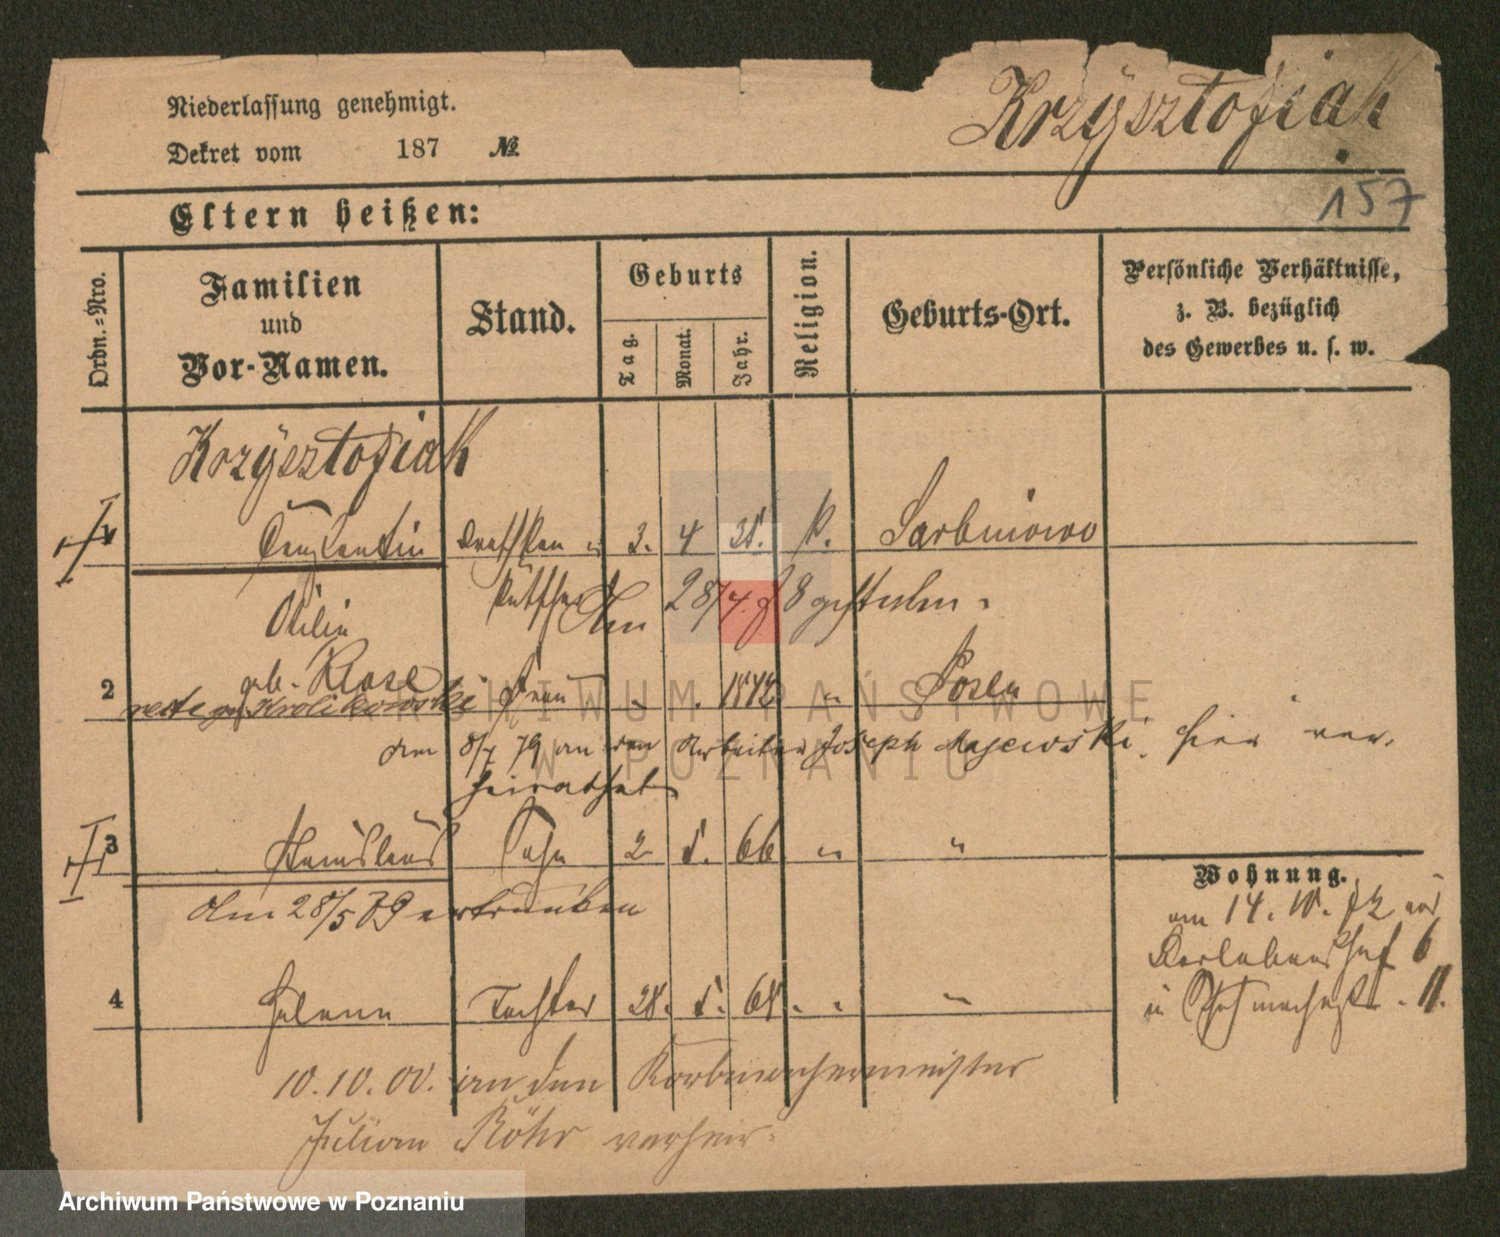 Niederlassung genehmigt.
Dekret vom 187 №.
Krzÿsztofiak
157
Eltern heißen:
Ordn.-Nro.
Familien
und
Vor-Namen.
Stand.
Geburts
Tag.
Monat.
Jahr.
Religion.
Geburts-Ort.
Persönliche Verhältnisse,
z. B. bezüglich
des Gewerbes u. s. w.
Krzÿsztofiak
1 Constantin 3. 4 38. k. Sarbinowo
Am 28/4. 78 gestorben.
Otilie
geb. Klose
2 Frau 1842 " Posen
rect geb Krolikowski
am 8/7 79 an den Arbeiter Joseph Majewski hier ver-
heirathet
3 Stanislaus Sohn 2 5. 66 " "
Am 28/5 79 ertrunken
4 Helene Tochter 28. 5. 68 " "
10. 10. 00. an den Korbmachermeister
Julian Röhr verheir.
Wohnung.
am 14. 10. 72 aus
6
in 11.
ARCHIWUM PAŃSTWOWE
W POZNANIU
Archiwum Państwowe w Poznaniu